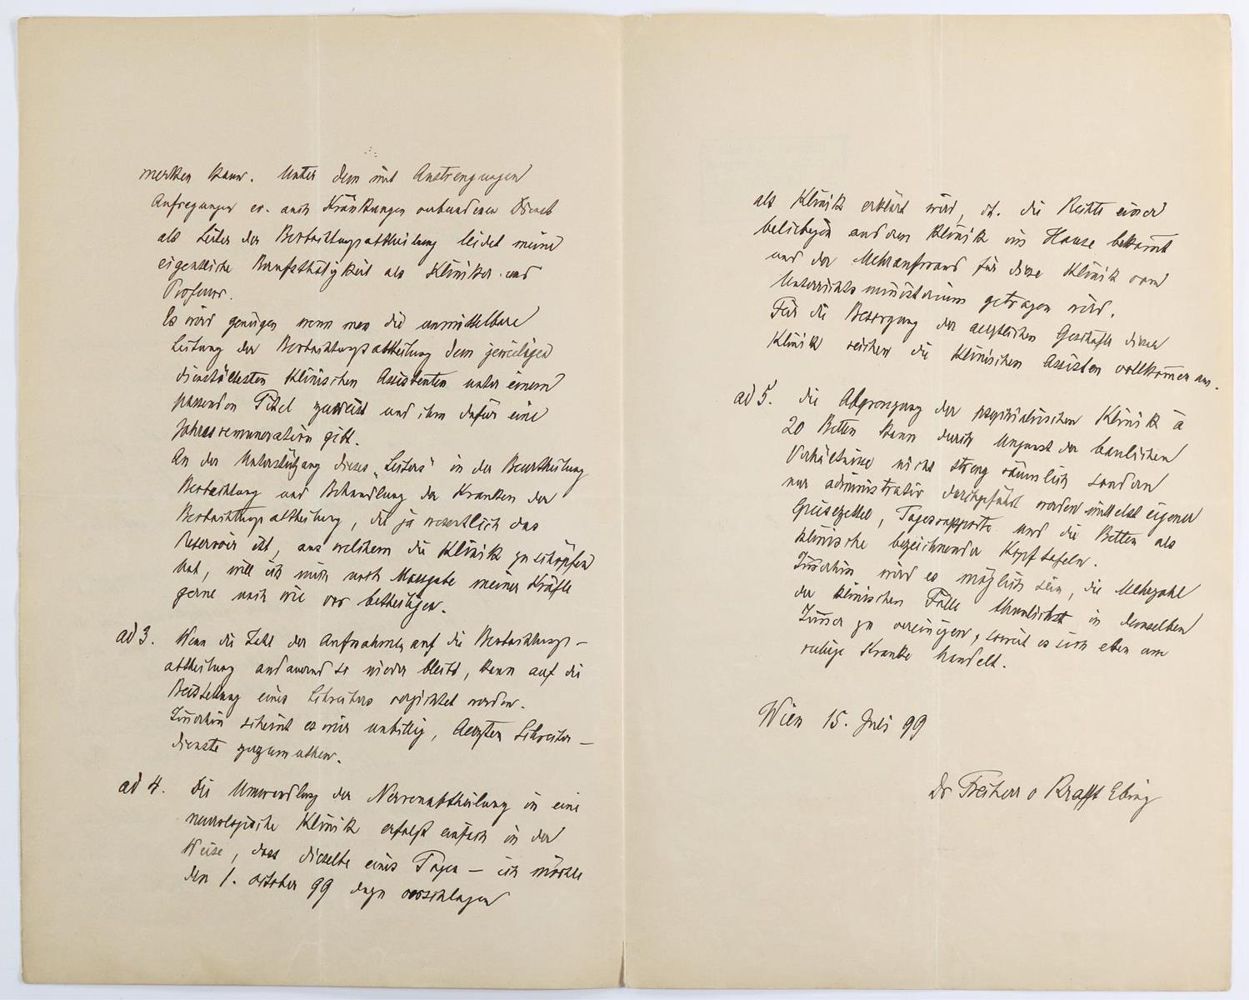 merken kann. Unter dem mit Anstrengungen
Aufregungen ev. auch Kränkungen verbundenen Dienst
als Leiter der Beobachtungsabtheilung leidet meine
eigentliche Berufsthätigkeit als Kliniker und
Professor.
Es wird genügen wenn man die unmittelbare
Leitung der Beobachtungsabtheilung dem jeweiligen
dienstältesten klinischen Assistenten unter einem
passenden Titel zuweist und ihm dafür eine
Jahresremuneration gibt.
An der Unterstützung dieses „Leiters" in der Beurtheilung
Beobachtung und Behandlung der Kranken der
Beobachtungsabtheilung, die ja wesentlich das
Reservoir ist, aus welchem die Klinik zu schöpfen
hat, will ich mich nach Maasgabe meiner Kräfte
gerne nach wie vor betheiligen.
ad 3. Wenn die Zahl der Aufnahmen auf die Beobachtungs-
abtheilung andauernd so nieder bleibt, kann auf die
Bestellung eines Schreibers verzichtet werden.
Immerhin scheint es mir unbillig, Aerzten Schreiber-
dienste zuzumuthen.
ad 4. die Umwandlung der Nervenabtheilung in eine
neurologische Klinik erfolgt einfach in der
Weise, dass dieselbe eines Tages – ich möchte
den 1. october 99 dazu vorschlagen
als Klinik erklärt wird, dh. die Rechte einer
beliebigen anderen Klinik im Hause bekommt
und der Mehraufwand für diese Klinik vom
Unterrichtsministerium getragen wird.
Für die Besorgung der aerztlichen Geschäfte dieser
Klinik reichen die klinischen Assisten vollkommen aus.
ad 5. die Abgrenzung der psychiatrischen Klinik à
20 Betten kann durch Ungunst der baulichen
Verhältnisse nicht streng räumlich sondern
nur administrativ durchgeführt werden mittelst eigener
Speisezettel, Tagesrapporte und die Betten als
klinische bezeichnender Kopftafeln.
Immerhin wird es möglich sein, die Mehrzahl
der klinischen Fälle thunlichst in demselben
Zimmer zu vereinigen, soweit es sich eben um
ruhige Kranke handelt.
Wien 15. Juli 99
Dr Freiherr v Krafft Ebing